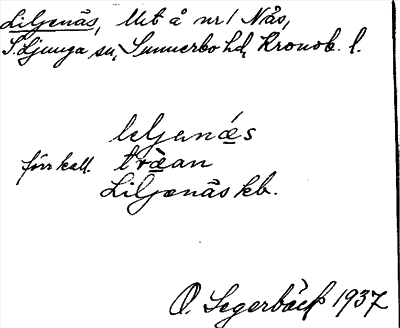 Liljenäs, Utt å nr 1 Nås,
S. Ljunga sn, Sunnerbo hd, Kronob. l.
leljenä́s
förr kall. trä̀an
Liljenäs kb.
O. Segerbäck 1937